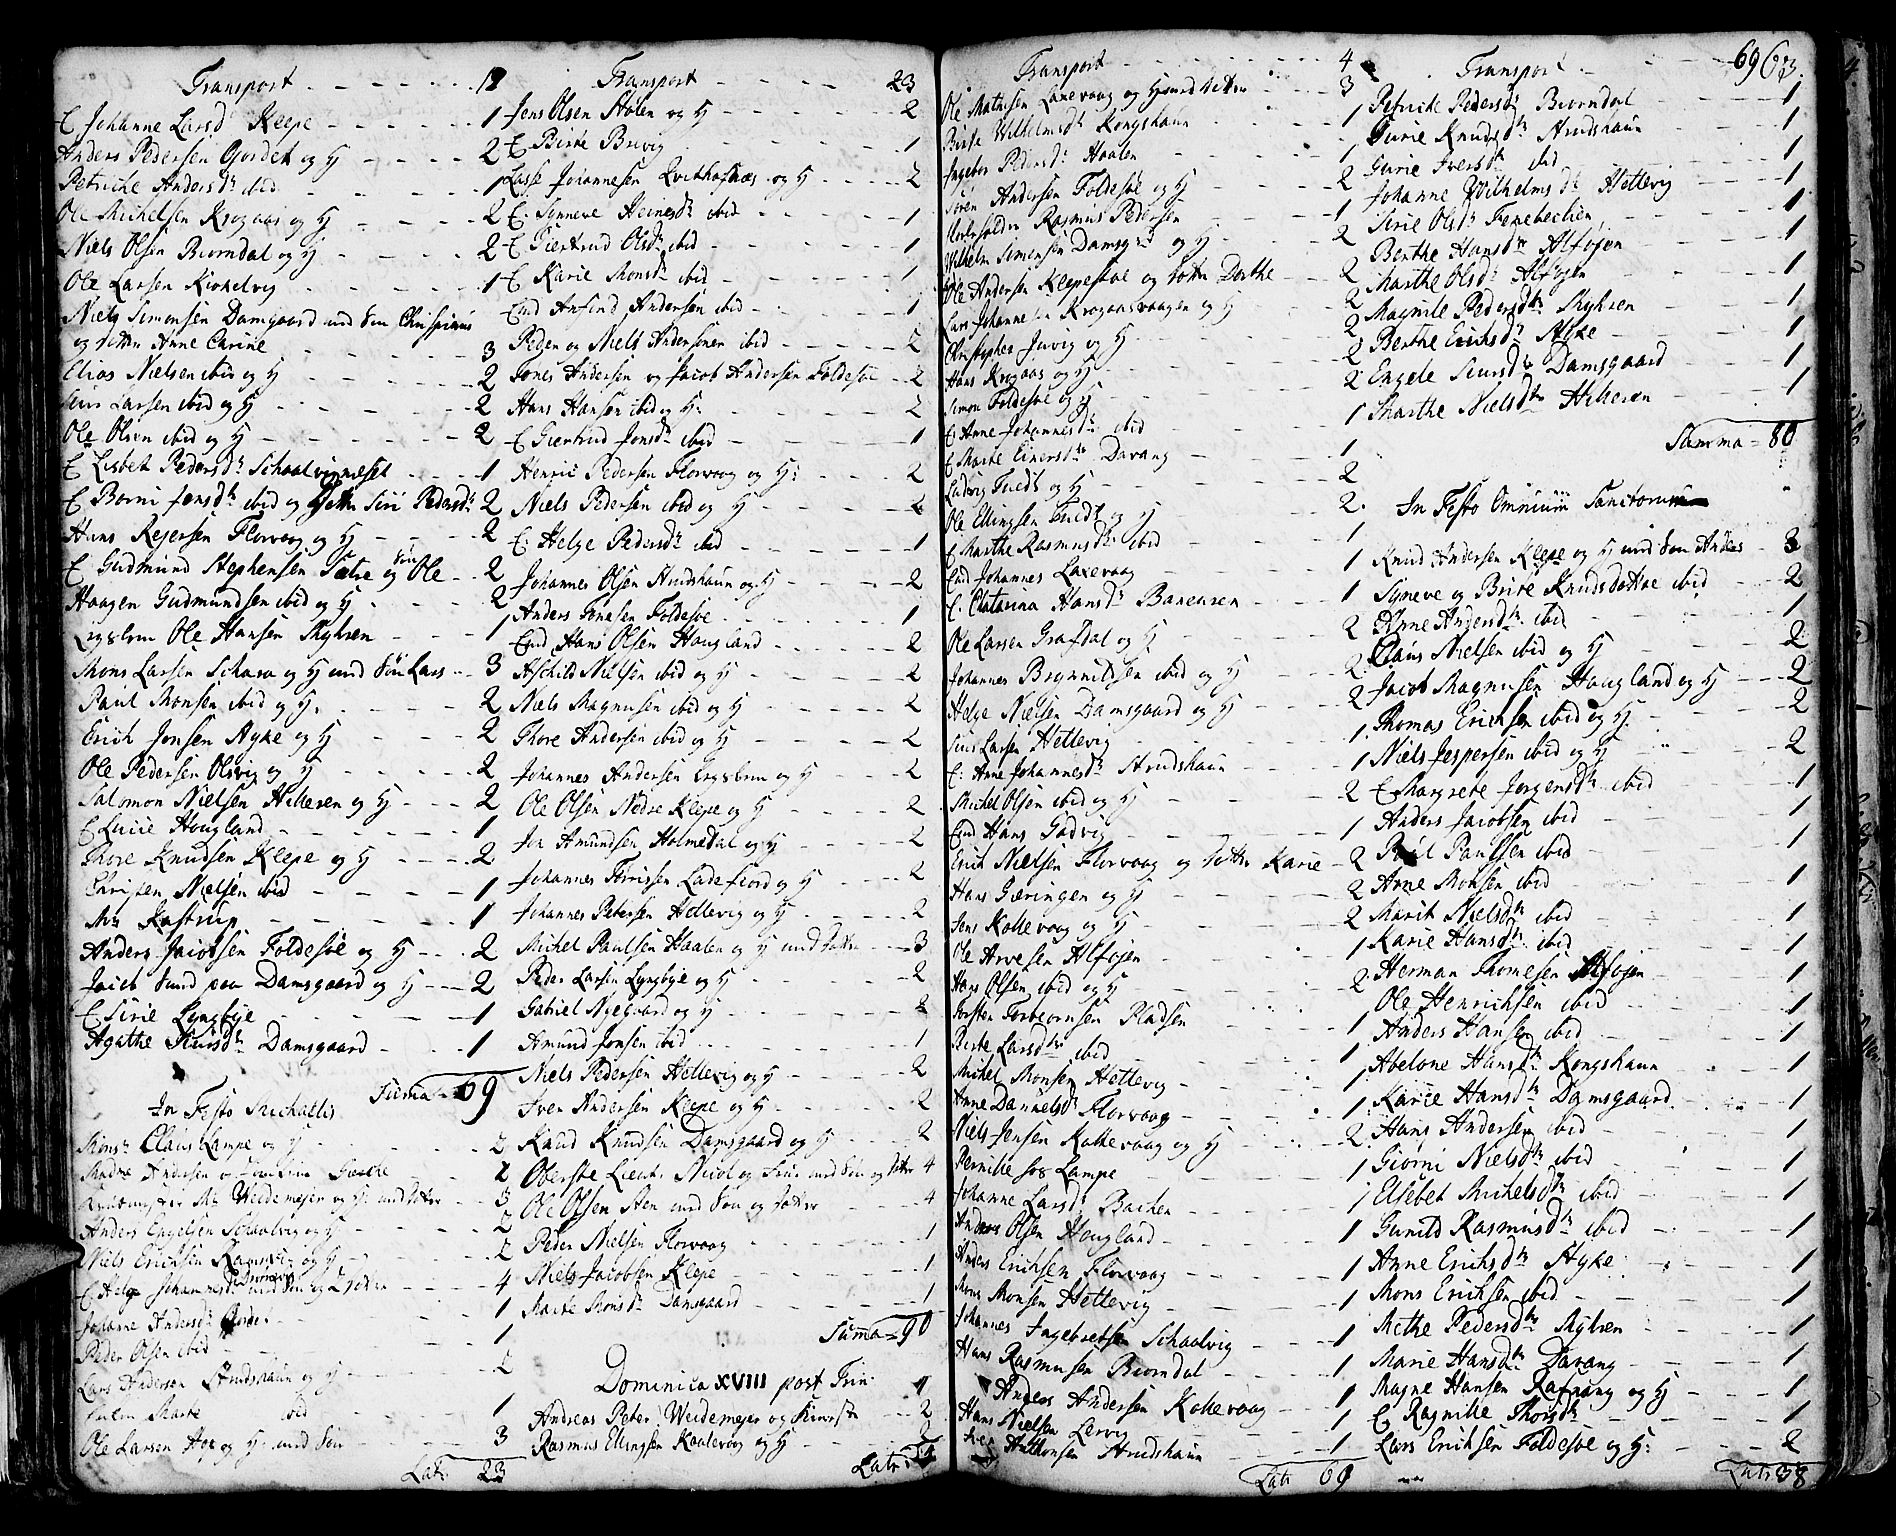 Transport 12
E Johanne Larsdr Klepe 1
Anders Pedersen Gjordet og Hj 2
Petriche Andersdr ibid 1
Ole Michelsen Krogaas og Hj 2
Niels Olsen Biorndal og Hj 2
Ole Larsen Kirkelvig 1
Niels Simonsen Damgaard med Søn Christianus
og Dotter Anne Carine 3
Elias Nielsen ibid og Hj 2
Larsen ibid og Hj 2
Ole Olsen ibid og Hj 2
E Lisbet Pedersdr Schaalvignæset 1
E Borni Jensdr ibid og Dotter Siri Pedersdr 2
Hans Rejersen Florvaag og Hj 2
E Gudmund Stephensen Sætre og Søn Ole 2
Haagen Gudmundsen ibid og Hj 2
Ole Hansen Myhren 1
Mons Larsen Schara og Hj med Søn Lars 3
Paul Monsen ibid og Hj 2
Erich Jonsen Myke og Hj 2
Ole Pedersen Olsvig og Hj 2
Salomon Nielsen Hilleren og Hj 2
E Lucie Hougland 1
Thore Knudsen Klepe og Hj 2
Christen Nielsen ibid 1
Mr Kastrup 1
Anders Jacobsen Foldesøe og Hj 2
Jacob Sund paa Damsgaard og Hj 2
E Sirie Lyngbye 1
Agathe Siursdr Damsgaard 1
Suma 69
In Festo Michaelis
Monsr Claus Lampe og Hj 2
Madme Andersen 2
Mr Weidemejer og Hj med Dotter 3
Anders Engelsen Schaalvig og Hj 2
Niels Erichsen og Hj 2
E Helge Johannesdr med Søn og 2 Døttre 4
Johanne Andersdr 1
Peder Olsen ibid 1
Lars Andersen Strudshaun og Hj 2
Marte ibid 1
Ole Larsen Hop og Hj med Søn 3
Lat: 23
Transport 23
Jens Olsen Holen og Hj 2
E Birte Bruvig 1
Lasse Johannesen og Hj 2
E. Synneve Heinesdr ibid 1
E Giertrud Olsdr ibid 1
E Karie Monsdr ibid 1
Emd Anfind Andersen ibid 1
Peder og Niels Andersønner ibid 2
Jones Andersen og Jacob Andersen Foldesøe 2
Hans Hansen ibid og Hj 2
E Giertrud Jonsdr ibid 1
Henric Pedersen Florvaag og Hj 2
Niels Pedersen ibid og Hj 2
E. Helge Pedersdr ibid 1
Johannes Olsen Strudshaun og Hj 2
Anders Jonasen Foldesøe 1
Emd Hans Olsen Hougland 2
Aschild Nielsen ibid og Hj 2
Niels Magnusen ibid og Hj 2
Thore Andersen ibid og Hj 2
Johannes Andersen og Hj 2
Ole Olsen Nedre Klepe og Hj 2
Jon Amundsen Holmedal og Hj 2
Johannes Torrissen Ladefiord og Hj 2
Johannes Petersen Hettevig og Hj 2
Michel Paulsen Haalen og Hj med Dotter 3
Peder Larsen Lyngbye og Hj 2
Gabriel Nyegaard og Hj 2
Amund Jonsen ibid 1
Niels Pedersen Hettevig og Hj 2
Iver Andersen Klepe og Hj 2
Knud Knudsen Damsgaard og Hj 2
Oberste Lieut: Nicol og Frue med Søn og Doter 4
Ole Olsen Aen med Søn og Datter 4
Peder Nielsen Florvaag 1
Niels Jacobsen Klepe 1
Marte Monsdr Damsgaard 1
Suma 90
Dominica XVIII post Trin:
Andreas Peter Weidemejer og Kiereste 2
Rasmus Ellingsen Kaalevaag og Hj 2
Latr 4
Transport 4
Ole Mathisen Laxevaag og Hj med Dotter 3
Birte Wilhelmsdr Kongshaun 1
Ingebor Pedersdr Haalen 1
Søren Andersen Foldesøe og Hj 2
Rasmus Pedersen 1
Wilhelm Simensen Damsgrd og Hj 2
Ole Andersen Klepesøe og Dotter Dorthe 2
Lars Johannesen Krogaasvaagen og Hj 2
Christopher Juvig og Hj 2
Hans Krogaas og Hj 2
Simon Foldesøe og Hj 2
E Anne Johannesdr ibid 1
E Marte Einersdr Davang 1
Ludvig Tuedt og Hj 2
Ole Ellingsen Tuedt og Hj 2
E Marthe Rasmusdr ibid 1
Emd Johannes Laxevaag 1
E. Chatarina Hansdr Baneuren 1
Ole Larsen Gravdal og Hj 2
Johannes Brynnildsen ibid og Hj 2
Helge Nielsen Damsgaard og Hj 2
Siur Larsen Hettevig 1
E. Anne Johannesdr Strudshaun 1
Michel Olsen ibid og Hj 2
Emd Hans Godvig 1
Erich Nielsen Florvaag og Dotter Karie 2
Hans Gæringen og Hj 2
Jens Kollevaag og Hj 2
Ole Arvesen Alfojen 1
Hans Olsen ibid og Hj 2
Torsten Torbiørnsen Pladsen 1
Birte Larsdr ibid 1
Michel Monsen Hettevig 1
Anne Danielsdr Florvaag 1
Niels Jensen Kollevaag og Hj 2
Pernille hos Lampe 1
Johanne Larsdr Backen 1
Anders Olsen Hougland 1
Anders Erichsen Florvaag 1
Mons Monsen Hettevig 1
Johannes Ingebretsen Schaalvig 1
Hans Rasmusen Biorndal 1
Anders Andersen Kollevaag 1
Hans Nielsen Lervig 1
Iver Strudshaun 1
Latr 69
Transport 69 63.
Petriche Pedersdr Biorndal 1
Gurie Knudsdr Strudshaun 1
Gurie Iversdr ibid 1
Johanne Wilhelmsdr Hettevig 1
Sirie Olsdr Fenebechen 1
Berthe Hansdr Alfojen 1
Marthe Olsdr Alfojen
Magnile Pedersdr Myhren 1
Berthe Erichsdr Myke 1
Engele Siursdr Damsgaard 1
Marthe Nielsdtr Hilleren 1
Summa 80
In Festo Omnium Sanctorum
Knud Andersen Klepe og Hj med Søn Anders 3
Syneve og Brite Knudsdøttre ibid 2
Anne Andersdr ibid 1
Claus Nielsen ibid og Hj 2
Jacob Magnusen Hougland og Hj 2
Thomas Erichsen ibid og Hj 2
Niels Jespersen ibid og Hj 2
E Margrete Jørgensdr ibid 1
Anders Jacobsen ibid 1
Poul Paulsen ibid 1
Arne Monsen ibid 1
Marit Nielsdr ibid 1
Karie Hansdr ibid 1
Herman Thomesen Alfojen 1
Ole Henrichsen ibid 1
Anders Hansen ibid 1
Abelone Hansdr Kongshaun 1
Karie Hansdr Damsgaard 1
Hans Andersen ibid 1
Giorni Nielsdr ibid 1
Elsebet Michelsdr ibid 1
Gunild Rasmusdr ibid 1
Anne Erichsdr Myke 1
Mons Erichsen ibid 1
Methe Pedersdtr Myhren 1
Marie Hansdr Davang 1
Magne Hansen Rafnang og Hj
E Ragnille Thorsdr 1
Lars Erichsen Foldesøe og Hj 2
Latr 38